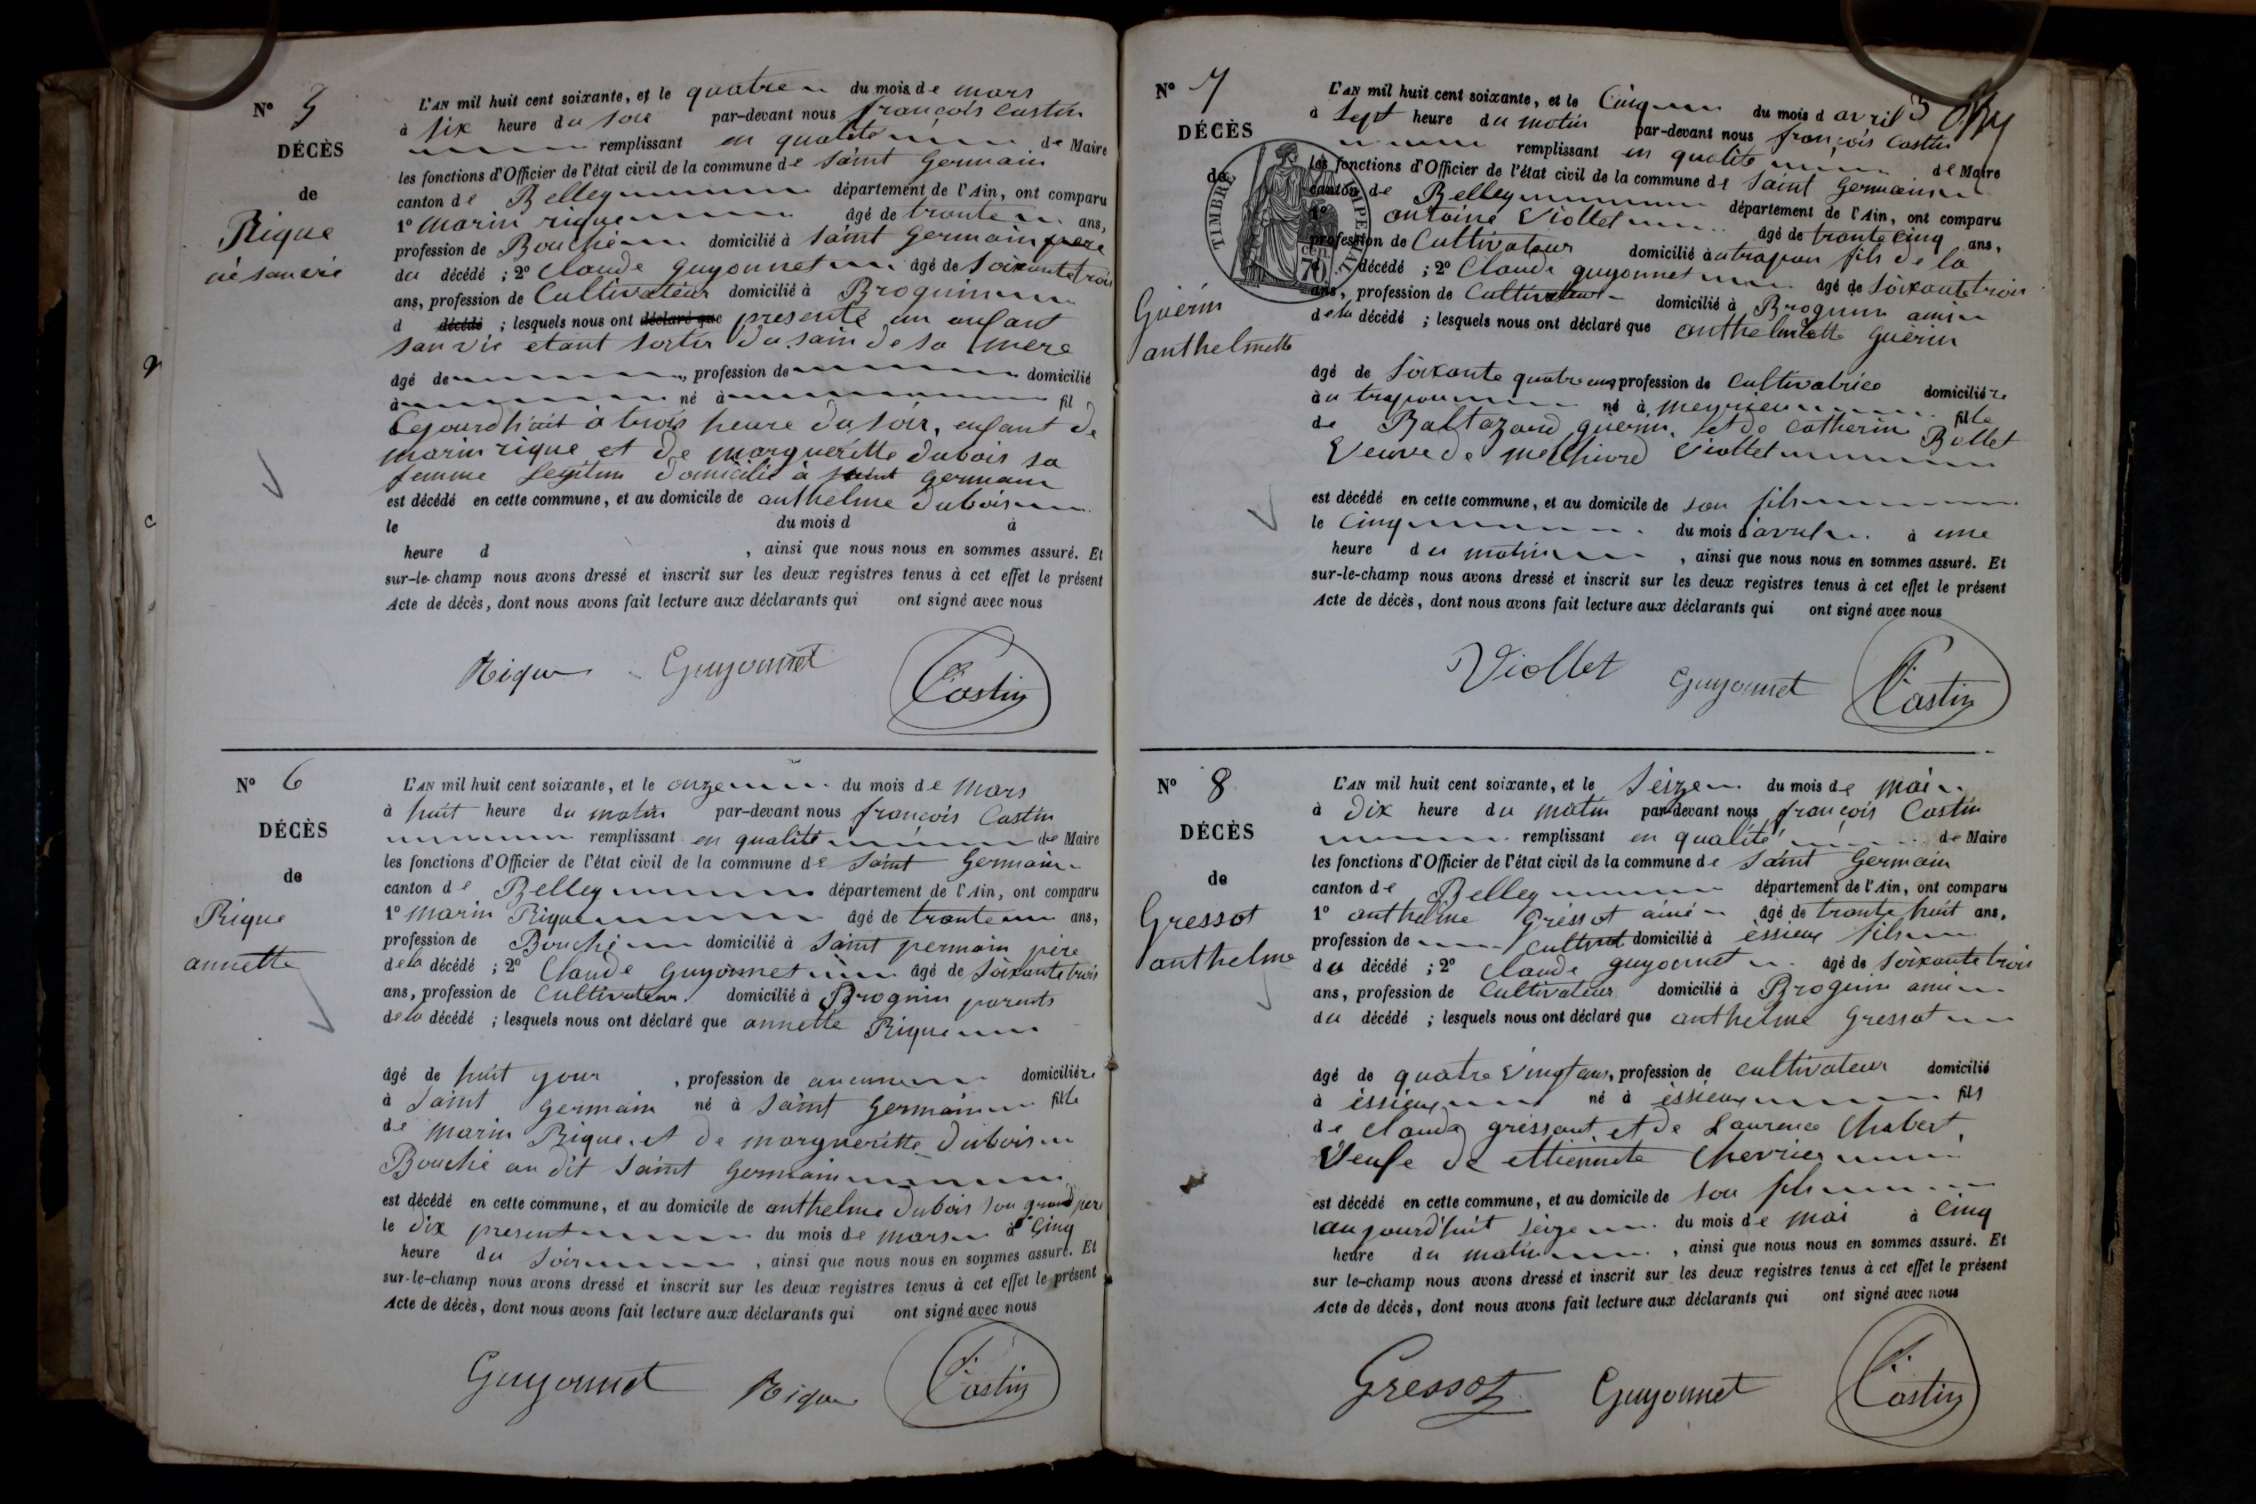 N° 5
DÉCÈS
de
Rique
né sans vie
L'AN mil huit cent soixante, et le quatre du mois de mars
à six heure du soir par-devant nous françois Castin
remplissant en qualité de Maire
les fonctions d'Officier de l'état civil de la commune de saint Germain
canton de Belley département de l'Ain, ont comparu
1° Marin rique âgé de trante ans,
profession de Bouché domicilié à saint Germain pere
du décédé ; 2° Claude Guyonnet âgé de soixante trois
ans, profession de Cultivateur domicilié à Brognin
d décédé ; lesquels nous ont déclaré que presenté un enfant
san vie etant sortir du sain de sa mere
âgé de , profession de domicilié
à né à fil
Cejourdhuit à trois heure du soir, enfant de
marin rique et de margueritte dubois sa
femme legitim domicilié à saint germain
est décédé en cette commune, et au domicile de anthelme dubois
le du mois d à
heure d , ainsi que nous nous en sommes assuré. Et
sur-le-champ nous avons dressé et inscrit sur les deux registres tenus à cet effet le présent
Acte de décès, dont nous avons fait lecture aux déclarants qui ont signé avec nous
Rique Guyonnet Castin
N° 6
DÉCÈS
de
Rique
annette
L'AN mil huit cent soixante, et le onze du mois de Mars
à huit heure du matin par-devant nous françois Castin
remplissant en qualité de Maire
les fonctions d'Officier de l'état civil de la commune de saint Germain
canton de Belley département de l'Ain, ont comparu
1° Marin Rique âgé de trante ans,
profession de Bouché domicilié à saint germain père
de la décédé ; 2° Claude Guyonnet âgé de soixante trois
ans, profession de Cultivateur domicilié à Brognin parents
de la décédé ; lesquels nous ont déclaré que annette Rique
âgé de huit your , profession de aucune domiciliére
à saint Germain né à saint Germain fille
de Marin Rique et de margueritte dubois
Bouché au dit saint Germain
est décédé en cette commune, et au domicile de anthelme dubois son grand pere
le dix present du mois de mars à Cinq
heure du soir , ainsi que nous nous en sommes assuré. Et
sur-le-champ nous avons dressé et inscrit sur les deux registres tenus à cet effet le présent
Acte de décès, dont nous avons fait lecture aux déclarants qui ont signé avec nous
Guyonnet Rique Castin
N° 7
DÉCÈS
de
TIMBRE IMPERIAL
70 CEN.
Guérin
anthelmette
L'AN mil huit cent soixante, et le Cinq du mois d avril
à sept heure du matin par-devant nous françois Castin
remplissant en qualité de Maire
les fonctions d'Officier de l'état civil de la commune de saint Germain
canton de Belley département de l'Ain, ont comparu
1° antoine Viollet âgé de trante cinq ans,
profession de Cultivateur domicilié à utrapon fils de la
décédé ; 2° Claude guyonnet âgé de soixante trois
ans, profession de Cultivateur domicilié à Brognin ami
de la décédé ; lesquels nous ont déclaré que anthelmette Guérin
âgé de soixante quatre ans profession de Cultivatrice domiciliére
à u trapon né à meyrieu fille
de Baltazard guérin, et de Catherin Bollet
Veuve de Melchiord Viollet
est décédé en cette commune, et au domicile de son fils
le Cinq du mois d avril à une
heure du matin , ainsi que nous nous en sommes assuré. Et
sur-le-champ nous avons dressé et inscrit sur les deux registres tenus à cet effet le présent
Acte de décès, dont nous avons fait lecture aux déclarants qui ont signé avec nous
Viollet Guyonnet Castin
N° 8
DÉCÈS
de
Gressot
anthelme
L'AN mil huit cent soixante, et le seize du mois de mai
à dix heure du matin par-devant nous françois Castin
remplissant en qualité de Maire
les fonctions d'Officier de l'état civil de la commune de saint Germain
canton de Belley département de l'Ain, ont comparu
1° anthelme Gressot ainé âgé de trante huit ans,
profession de cultivat domicilié à éssieux fils
du décédé ; 2° Claude guyonnet âgé de soixante trois
ans, profession de Cultivateur domicilié à Brognin ami
du décédé ; lesquels nous ont déclaré que anthelme Gressot
âgé de quatre vingt ans, profession de cultivateur domicilié
à éssieux né à éssieux fils
de claude gressaut et de Laurence Chabert,
Veufe de ettiennete Chevrier
est décédé en cette commune, et au domicile de son fils
laujourd'huit seize du mois de mai à Cinq
heure du matin , ainsi que nous nous en sommes assuré. Et
sur le-champ nous avons dressé et inscrit sur les deux registres tenus à cet effet le présent
Acte de décès, dont nous avons fait lecture aux déclarants qui ont signé avec nous
Gressot Guyonnet Castin